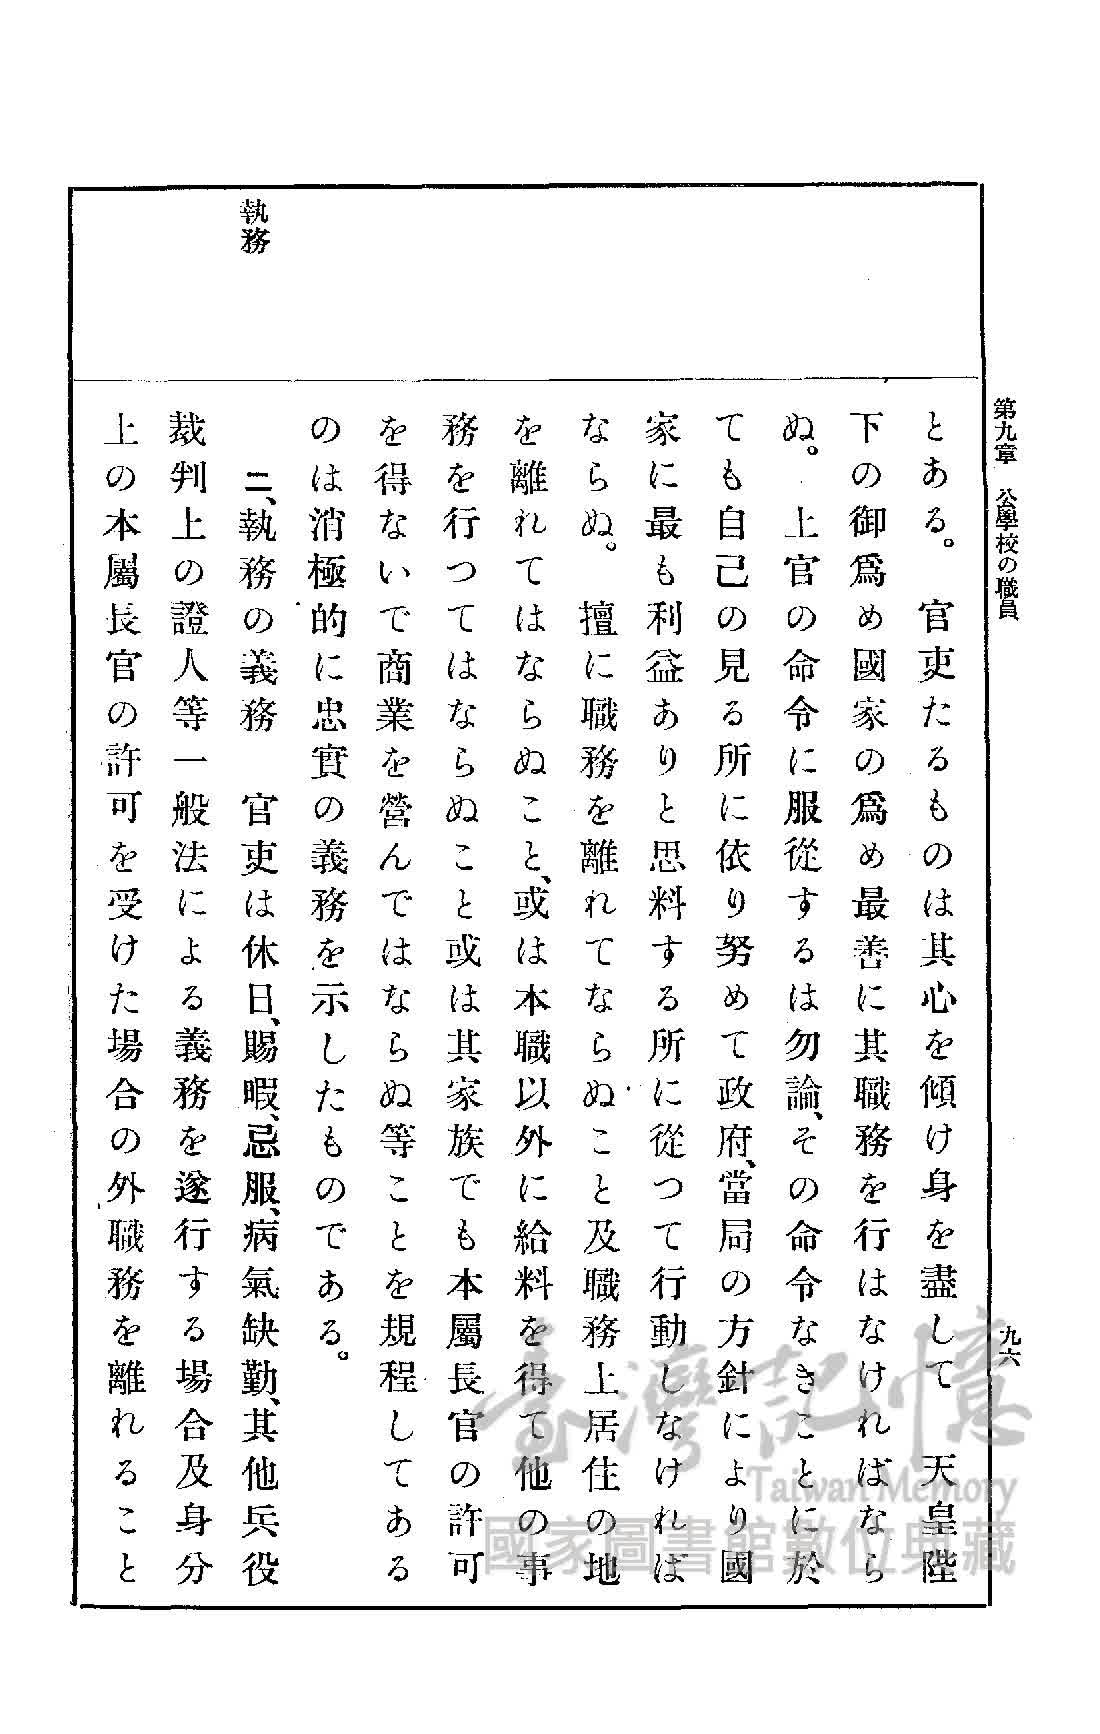 第九章　公學校の職員
九六
とある。官吏たるものは其心を傾け身を盡して　天皇陛
下の御爲め國家の爲め最善に其職務を行はなければなら
ぬ。上官の命令に服從するは勿論、その命令なきことに於
ても自己の見る所に依り努めて政府、當局の方針により國
家に最も利益ありと思料する所に從つて行動しなければ
ならぬ。擅に職務を離れてならぬこと及職務上居住の地
を離れてはならぬこと、或は本職以外に給料を得て他の事
務を行つてはならぬこと或は其家族でも本屬長官の許可
を得ないで商業を營んではならぬ等ことを規程してある
のは消極的に忠實の義務を示したものである。
執務
二、執務の義務　官吏は休日、賜暇、忌服、病氣缺勤、其他兵役
裁判上の證人等一般法による義務を遂行する場合及身分
上の本屬長官の許可を受けた場合の外職務を離れること
臺灣記憶
Taiwan Memory
國家圖書館數位典藏